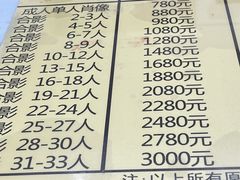 成人单人肖像 780元
合影 2-3人 880元
合影 4-5人 980元
合影 6-7人 1080元
合影 8-9人 1280元
合影 10-12人 1480元
合影 13-15人 1680元
合影 16-18人 1880元
合影 19-21人 2180元
合影 22-24人 2480元
合影 25-27人 2780元
合影 28-30人 3000元
合影 31-33人
注:以上所有原